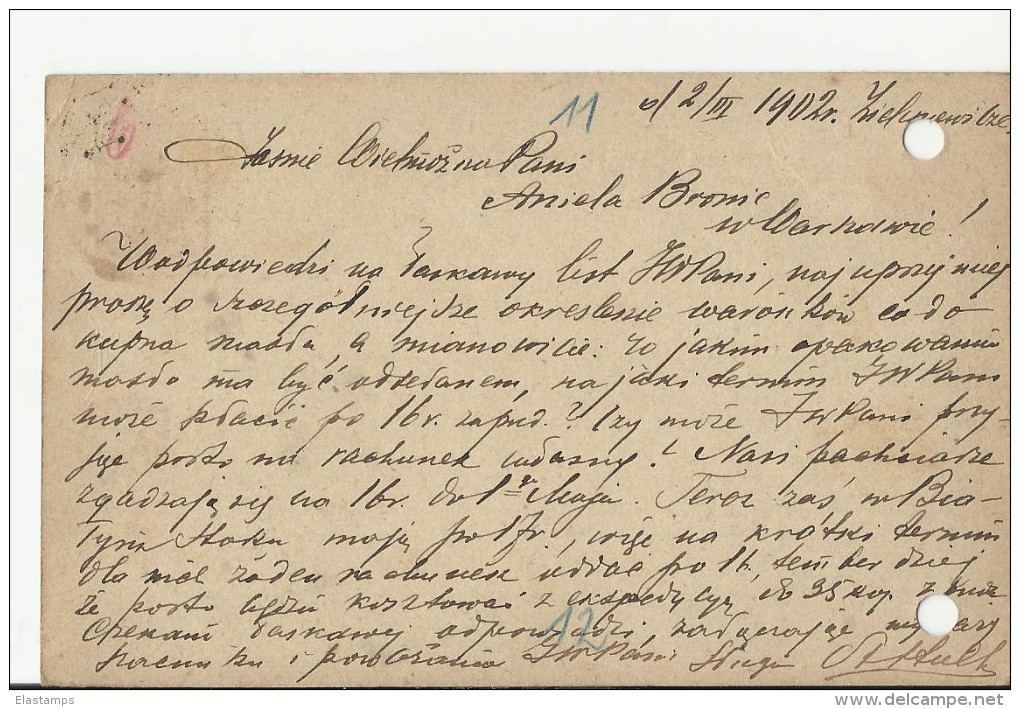 11 d 2/III 1902r.
6
Jaśnie Wielmożna Pani
Aniela Bronic
w Warszawie!
W odpowiedzi na łaskawy list JWPani, najuprzejmiej
proszę o szczegółniejsze określenie warónków co do
kupna masła, a mianowicie: w jakim opakowaniu
masło ma być odsełanem, na jaki termin JWPani
może płacić po 16r. za pud.? Czy może JWPani przy-
jąć porto na rachunek własny? Nasi pachciarze
zgadzają się na 16r. do 1go Maja. Teraz zaś w Bia-
łym Stoku mają po 17r., więc na krótki termin
dla mię żaden rachunek oddać po 16, tembardziej
że porto będzie kosztować z ekspedycyą do 35 kop. z puda
Czekam łaskawej odpowiedzi, załączając wyrazy
szacunku i poważania JWPani sługa
12
Elastamps
delcampe.net